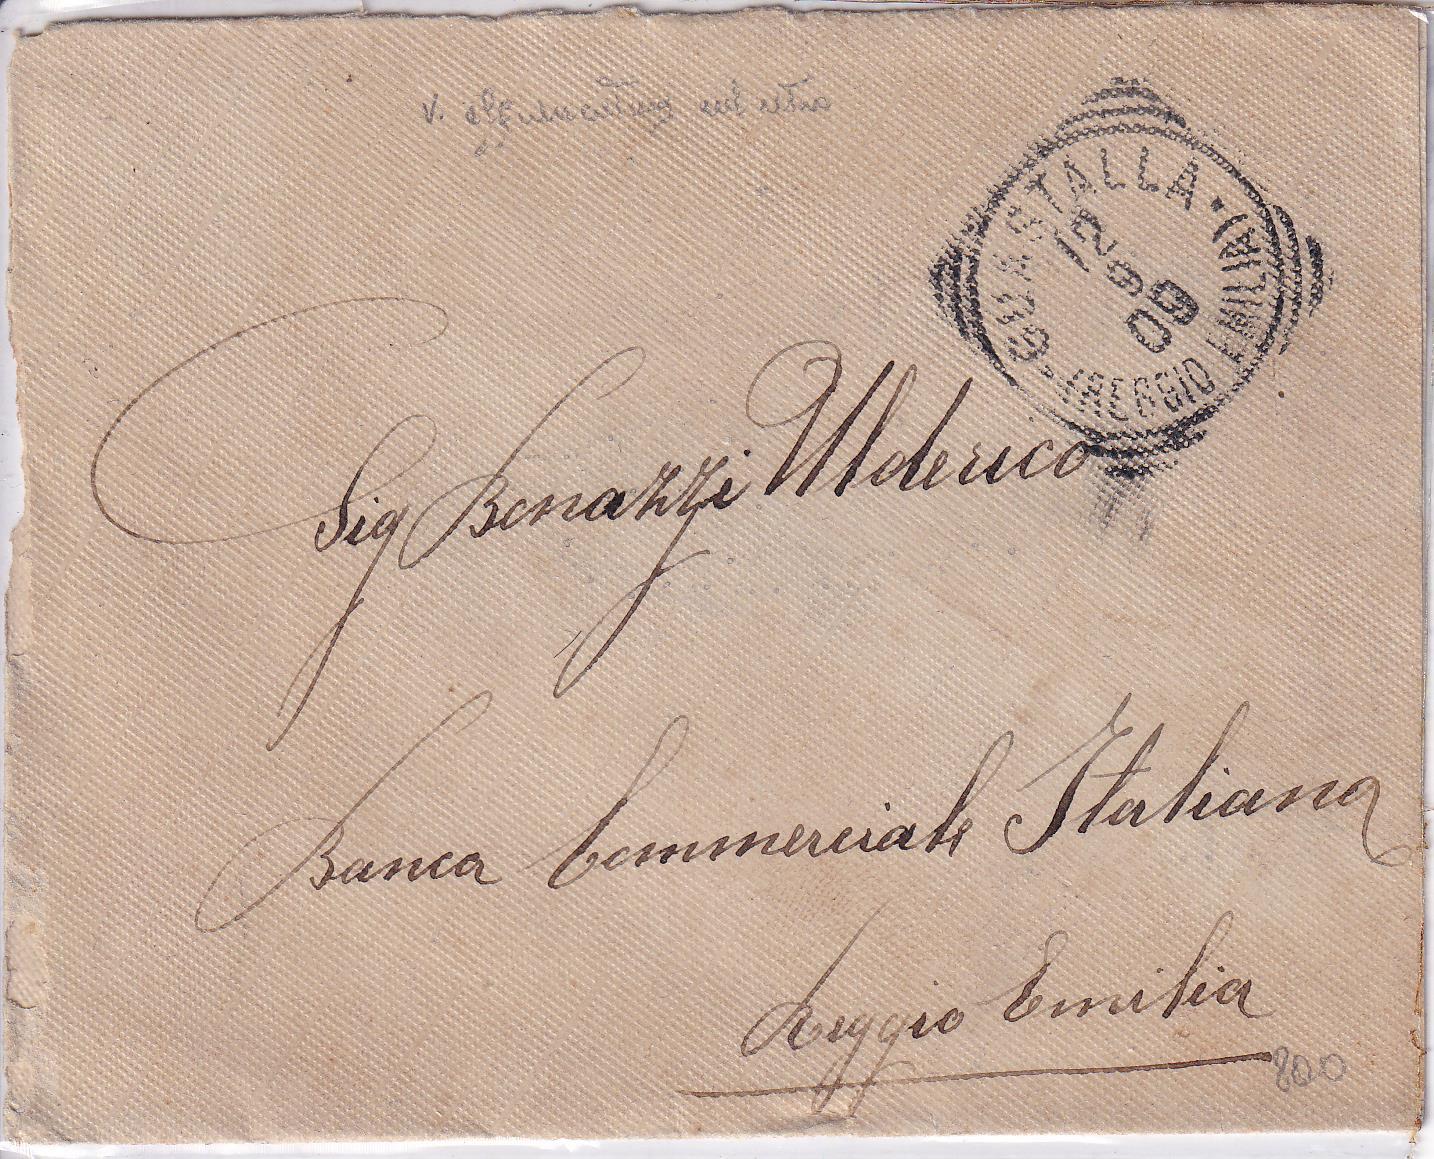 v. affrancatura sul retro
GUASTALLA · (REGGIO EMILIA)
12
9
09
Sig Bonazzi Ulderico
Banca Commerciale Italiana
Reggio Emilia
800